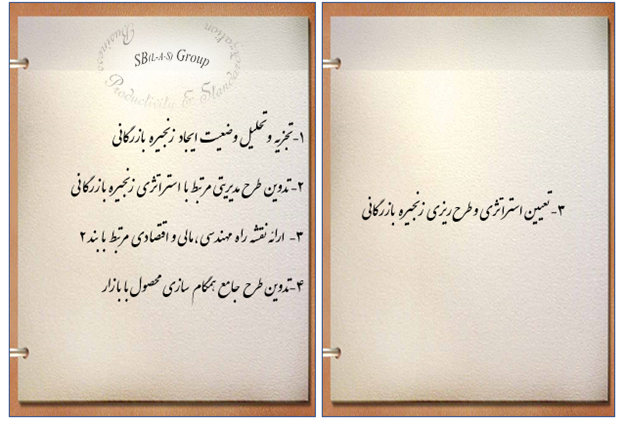 SB(L-A-S) Group
Business
Productivity & Standardization
۱-تجزیه و تحلیل وضعیت ایجاد زنجیره بازرگانی
۲-تدوین طرح مدیریتی مرتبط با استراتژی زنجیره بازرگانی
۳- ارائه نقشه راه مهندسی، مالی و اقتصادی مرتبط با بند ۲
۴-تدوین طرح جامع همگام سازی محصول با بازار
۳-تعیین استراتژی و طرح ریزی زنجیره بازرگانی